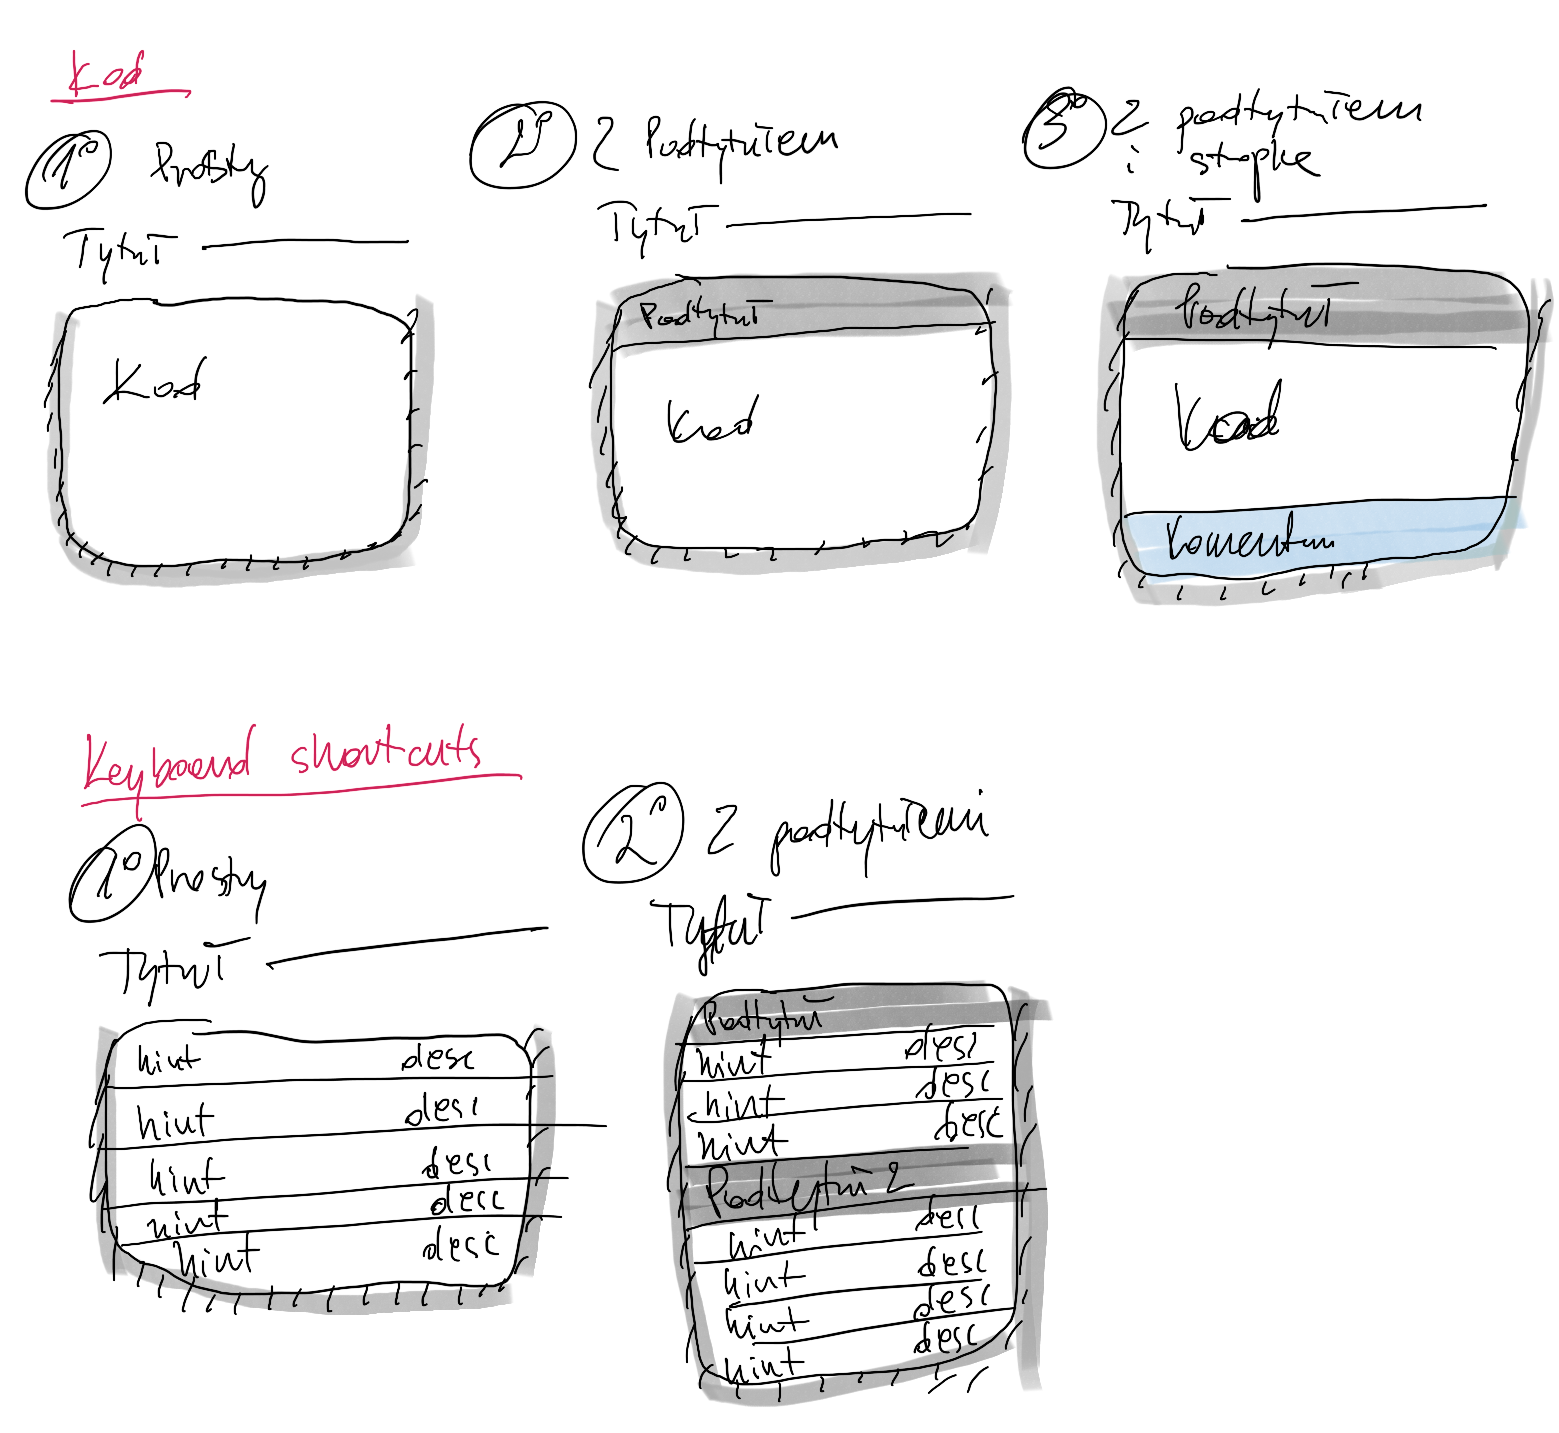 Kod
1° Prosty
Tytuł
Kod
2° Z Podtytułem
Tytuł
Podtytuł
Kod
3° Z podtytułem
i stopke
Tytuł
Podtytuł
Kod
Komentarz
Keyboard shortcuts
1° Prosty
Tytuł
hint desc
hint desc
hint desc
hint desc
hint desc
2° Z podtytułami
Tytuł
Podtytuł
hint desc
hint desc
hint desc
Podtytuł 2
hint desc
hint desc
hint desc
hint desc